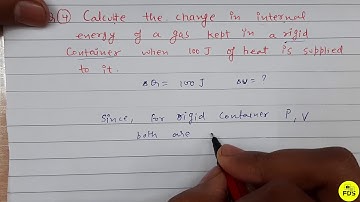 ④ Calculte the change in internal
energy of a gas kept in a rigid
Container when 100 J. of heat is supplied
to it.
ΔQ = 100 J ΔU = ?
Since, for rigid Container P, V
both are
FOS